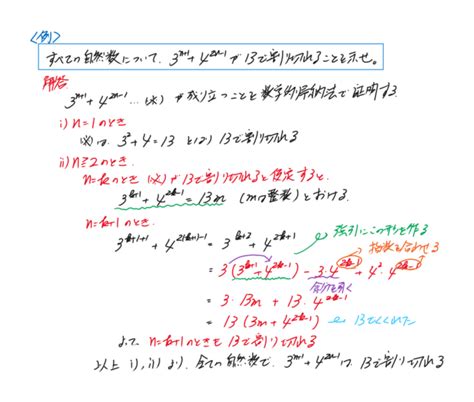 〈例〉
すべての自然数について、3^{n+1}+4^{2n-1}が13で割り切れることを示せ。
解答
3^{n+1}+4^{2n-1}…(※) が成り立つことを数学的帰納法で証明する
i) n=1のとき
(※)は、3^2+4=13 となり 13で割り切れる
ii) n≧2のとき、
n=kのとき (※)が13で割り切れると仮定すると、
3^{k+1}+4^{2k-1}=13m (mは整数) とおける
n=k+1のとき、
3^{k+1+1}+4^{2(k+1)-1}=3^{k+2}+4^{2k+1}
強引にこの形を作る
指数を合わせる
=3(3^{k+1}+4^{2k-1})-3・4^{2k-1}+4^2・4^{2k-1}
余分を引く
=3・13m+13・4^{2k-1}
=13(3m+4^{2k-1}) ← 13でくくれた
よって n=k+1のときも13で割り切れる
以上 i), ii) より、全ての自然数で、3^{n+1}+4^{2n-1}は 13で割り切れる